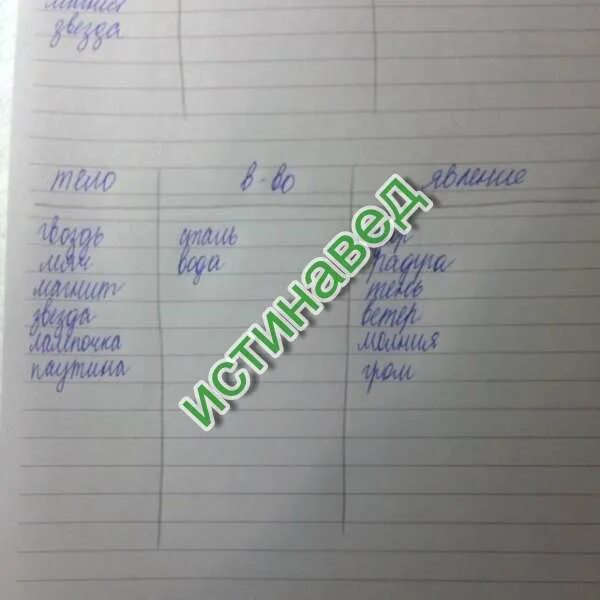 звезда
тело в-во явление
гвоздь сталь
мяч вода радуга
магнит тень
звезда ветер
лампочка молния
паутина гром
ИСТИНАВЕД